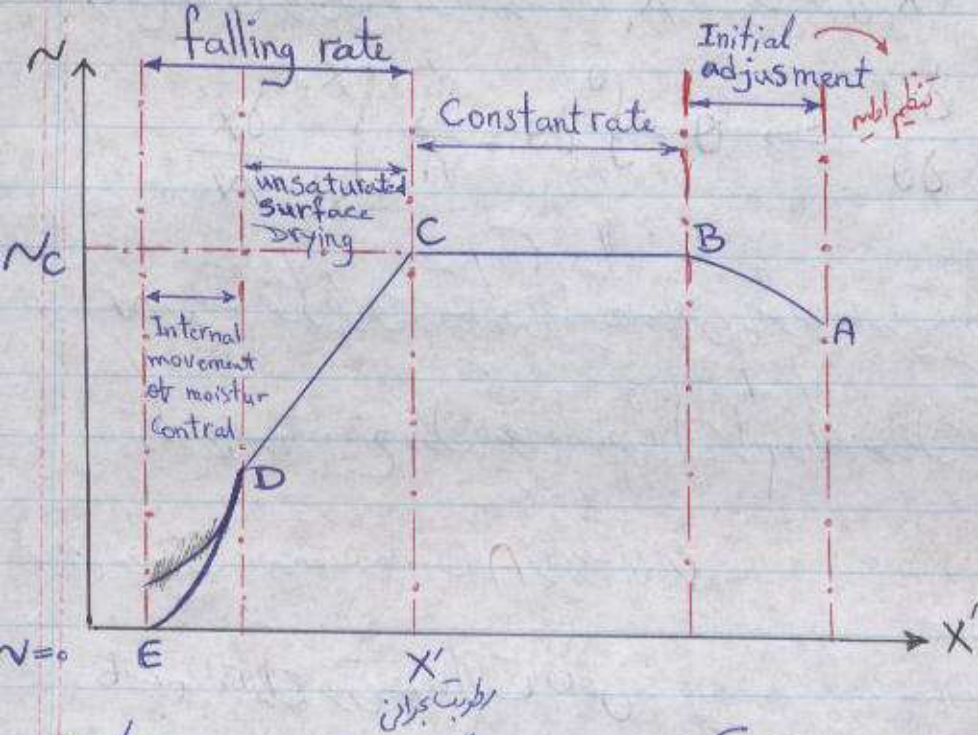 falling rate
Initial
adjusment
تنظیم اولیه
N
Constant rate
unsaturated
surface
Drying
Nc
C
B
A
Internal
movement
of moistur
Contral
D
N=0
E
X'
X'
رطوبت بحرانی